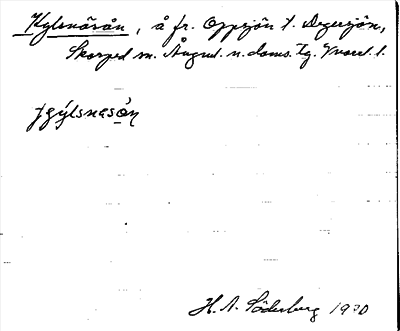 Kylsnäsån, å fr. Oppsjön t. Degersjön,
Skorped sn. Ångml. n. doms. Tg. l.
jɡýlsnasón
H. A. Söderberg 1930